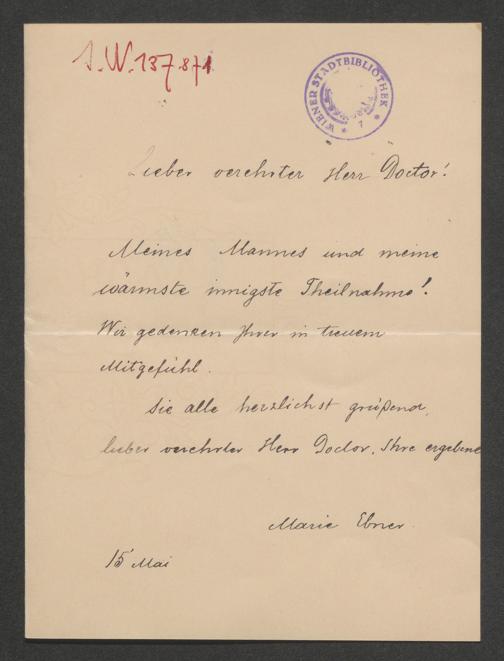 I.N. 137.871
WIENER STADTBIBLIOTHEK
Lieber verehrter Herr Doctor!
Meines Mannes und meine
wärmste innigste Theilnahme!
Wir gedenken Ihrer in treuem
Mitgefühl.
Sie alle herzlichst grüßend,
lieber verehrter Herr Doctor, Ihre ergebene
Marie Ebner.
15 Mai